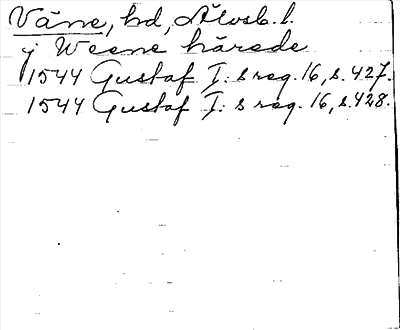 Väne, hd, Älvsb. l.
j Weene härede
1544 Gustaf I: s reg. 16, s. 427.
1544 Gustaf I: s reg. 16, s. 428.